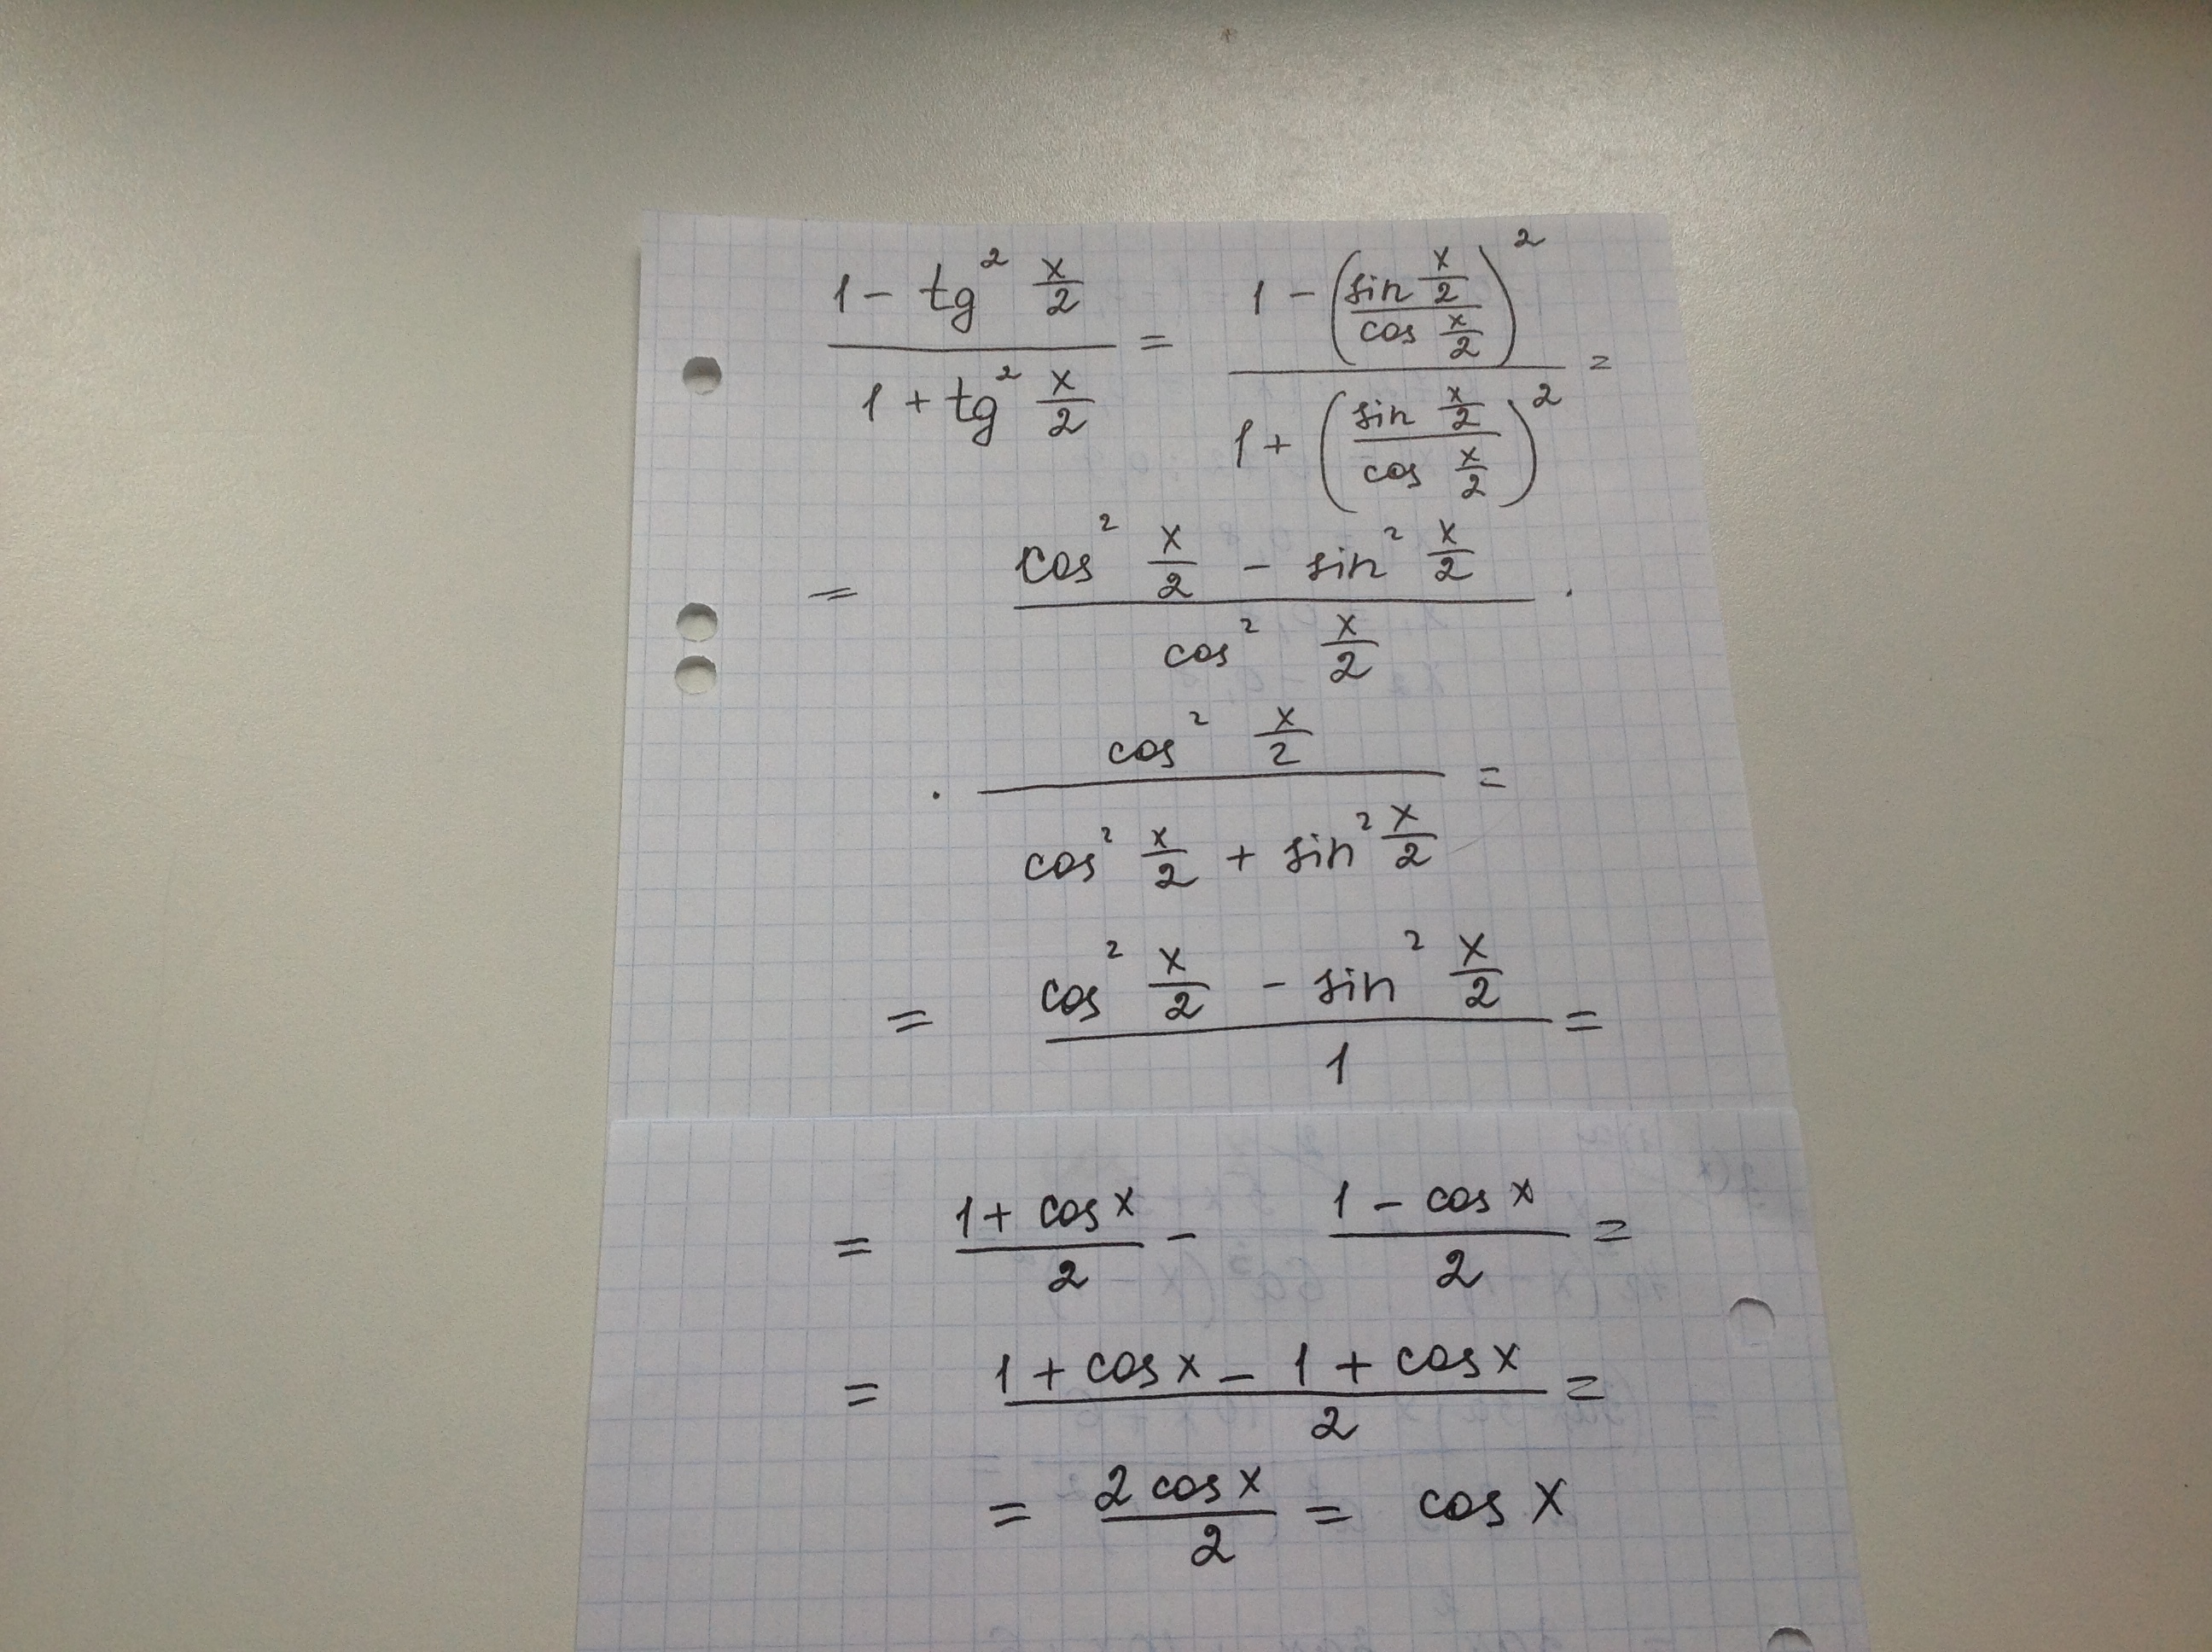 (1 - tg² x/2)/(1 + tg² x/2) = (1 - (sin x/2 / cos x/2)²)/(1 + (sin x/2 / cos x/2)²) =
= (cos² x/2 - sin² x/2)/(cos² x/2) ·
· (cos² x/2)/(cos² x/2 + sin² x/2) =
= (cos² x/2 - sin² x/2)/1 =
= (1 + cos x)/2 - (1 - cos x)/2 =
= (1 + cos x - 1 + cos x)/2 =
= (2 cos x)/2 = cos x